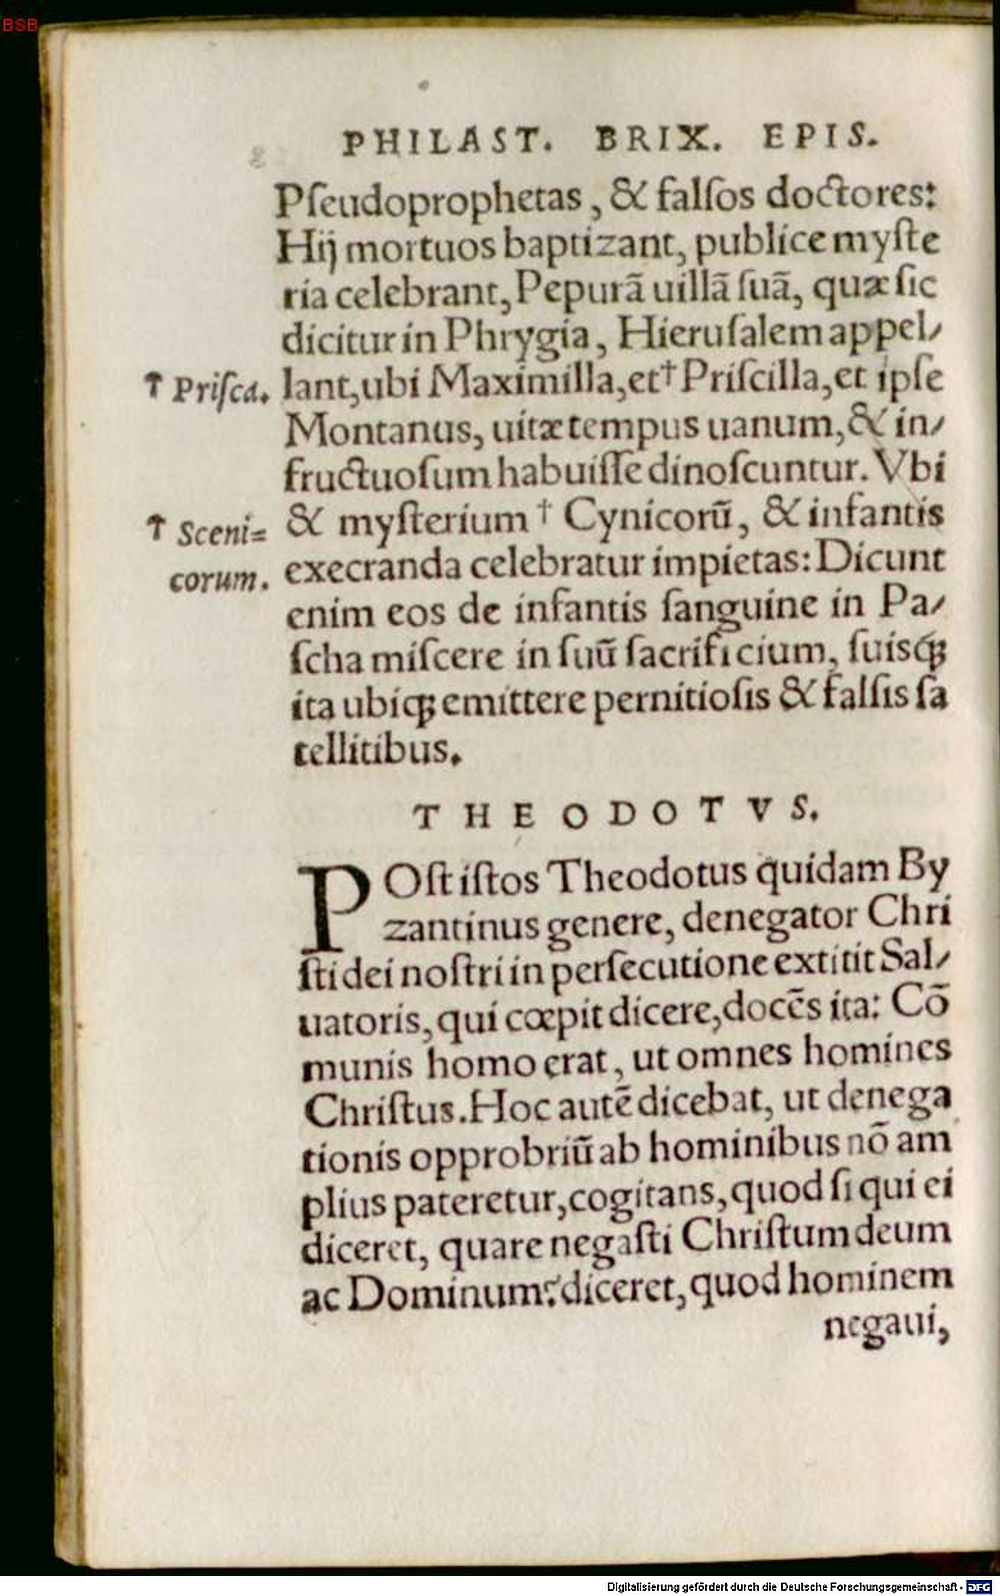 BSB
PHILAST. BRIX. EPIS.
Pſeudoprophetas, & falſos doctores:
Hij mortuos baptizant, publice myſte
ria celebrant, Pepurã uillã ſuã, quæ ſic
dicitur in Phrygia, Hieruſalem appel/
† Priſca.
lant, ubi Maximilla, et † Priſcilla, et ipſe
Montanus, uitæ tempus uanum, & in/
fructuoſum habuiſſe dinoſcuntur. Vbi
† Sceni=
corum.
& myſterium † Cynicorũ, & infantis
execranda celebratur impietas: Dicunt
enim eos de infantis ſanguine in Pa/
ſcha miſcere in ſuũ ſacrificium, ſuisq́;
ita ubiq; emittere pernitioſis & falſis ſa
tellitibus.
THEODOTVS.
POſt iſtos Theodotus quidam By
zantinus genere, denegator Chri
ſti dei noſtri in perſecutione extitit Sal/
uatoris, qui cœpit dicere, docẽs ita: Cõ
munis homo erat, ut omnes homines
Chriſtus. Hoc autẽ dicebat, ut denega
tionis opprobriũ ab hominibus nõ am
plius pateretur, cogitans, quod ſi qui ei
diceret, quare negaſti Chriſtum deum
ac Dominum? diceret, quod hominem
negaui,
Digitalisierung gefördert durch die Deutsche Forschungsgemeinschaft - DFG